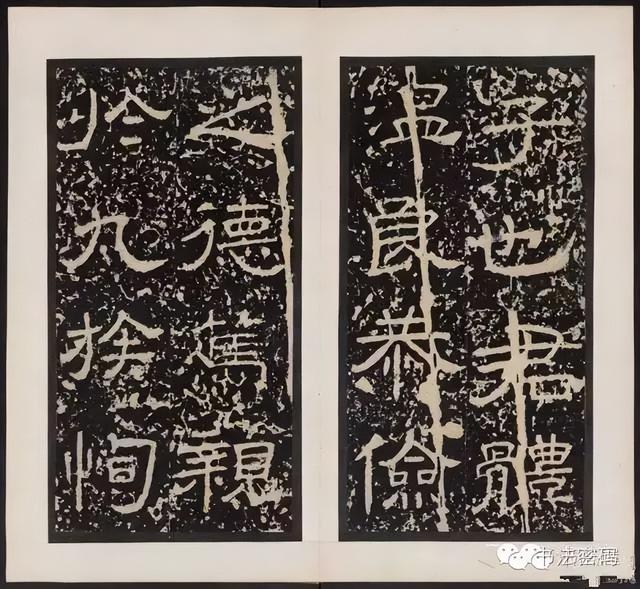 子也君體
温良恭儉
之德篤親
於九族恂
书法密碼